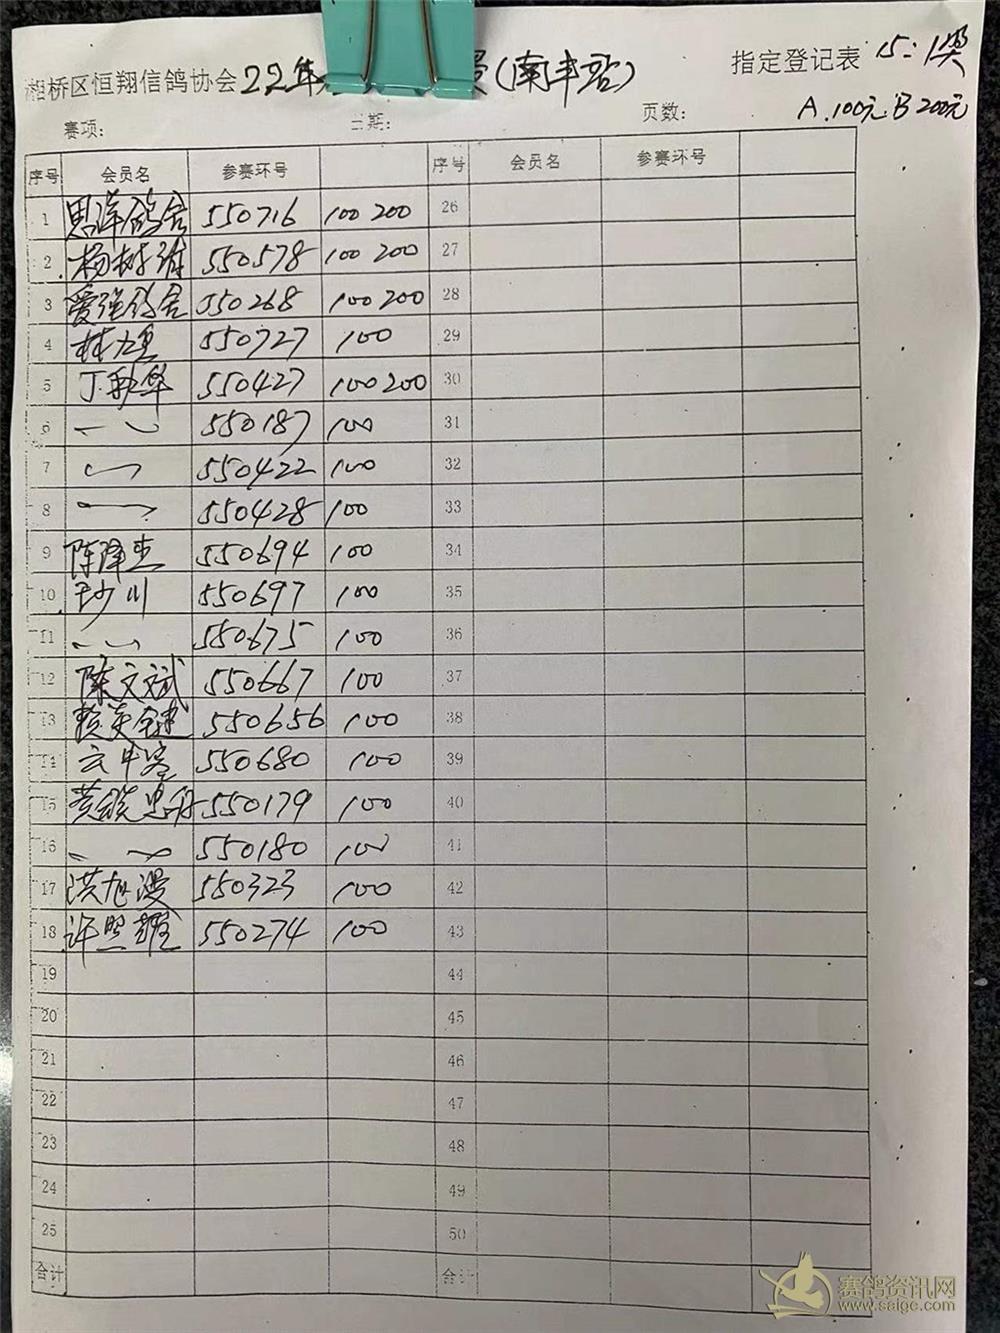 湘桥区恒翔信鸽协会22年 (南丰站) 指定登记表 15:1奖
A.100元 B 200元
赛项: 日期: 页数:
序号 会员名 参赛环号 序号 会员名 参赛环号
1 思泽鸽舍 550716 100 200 26
2 杨树雄 550578 100 200 27
3 爱强鸽舍 550268 100 200 28
4 550727 100 29
5 丁秋华 550427 100 200 30
6 550187 100 31
7 550422 100 32
8 550428 100 33
9 陈泽杰 550694 100 34
10 550697 100 35
11 550675 100 36
12 陈文斌 550667 100 37
13 550656 100 38
14 550680 100 39
15 550179 100 40
16 550180 100 41
17 洪旭漫 550323 100 42
18 许照耀 550274 100 43
19 44
20 45
21 46
22 47
23 48
24 49
25 50
合计 合计
赛鸽资讯网
www.saige.com